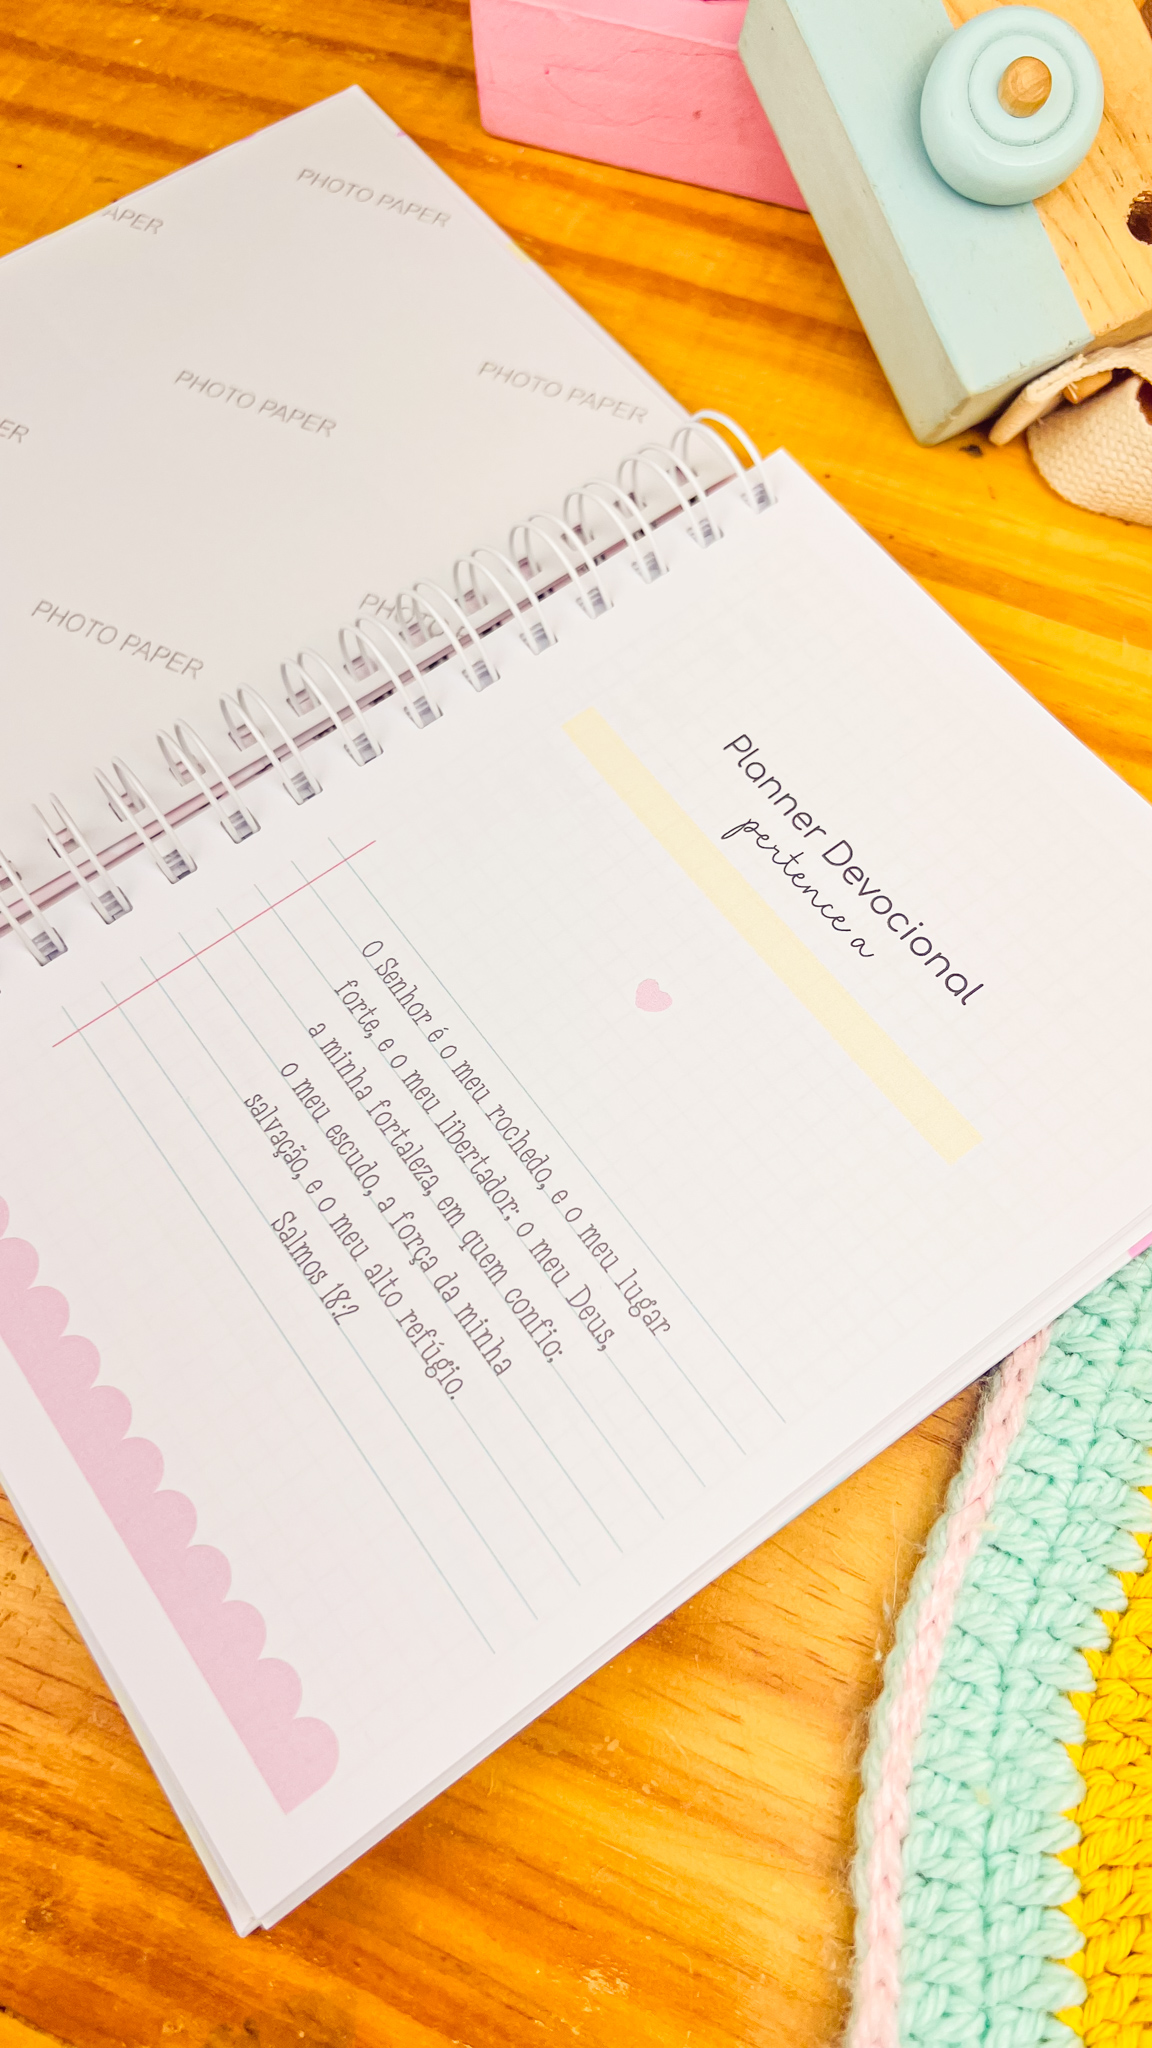 PHOTO PAPER
APER
PHOTO PAPER
PHOTO PAPER
ER
PHOTO PAPER
PHOTO
Planner Devocional
pertence a
O Senhor é o meu rochedo, e o meu lugar
forte, e o meu libertador; o meu Deus,
a minha fortaleza, em quem confio;
o meu escudo, a força da minha
salvação, e o meu alto refúgio.
Salmos 18:2